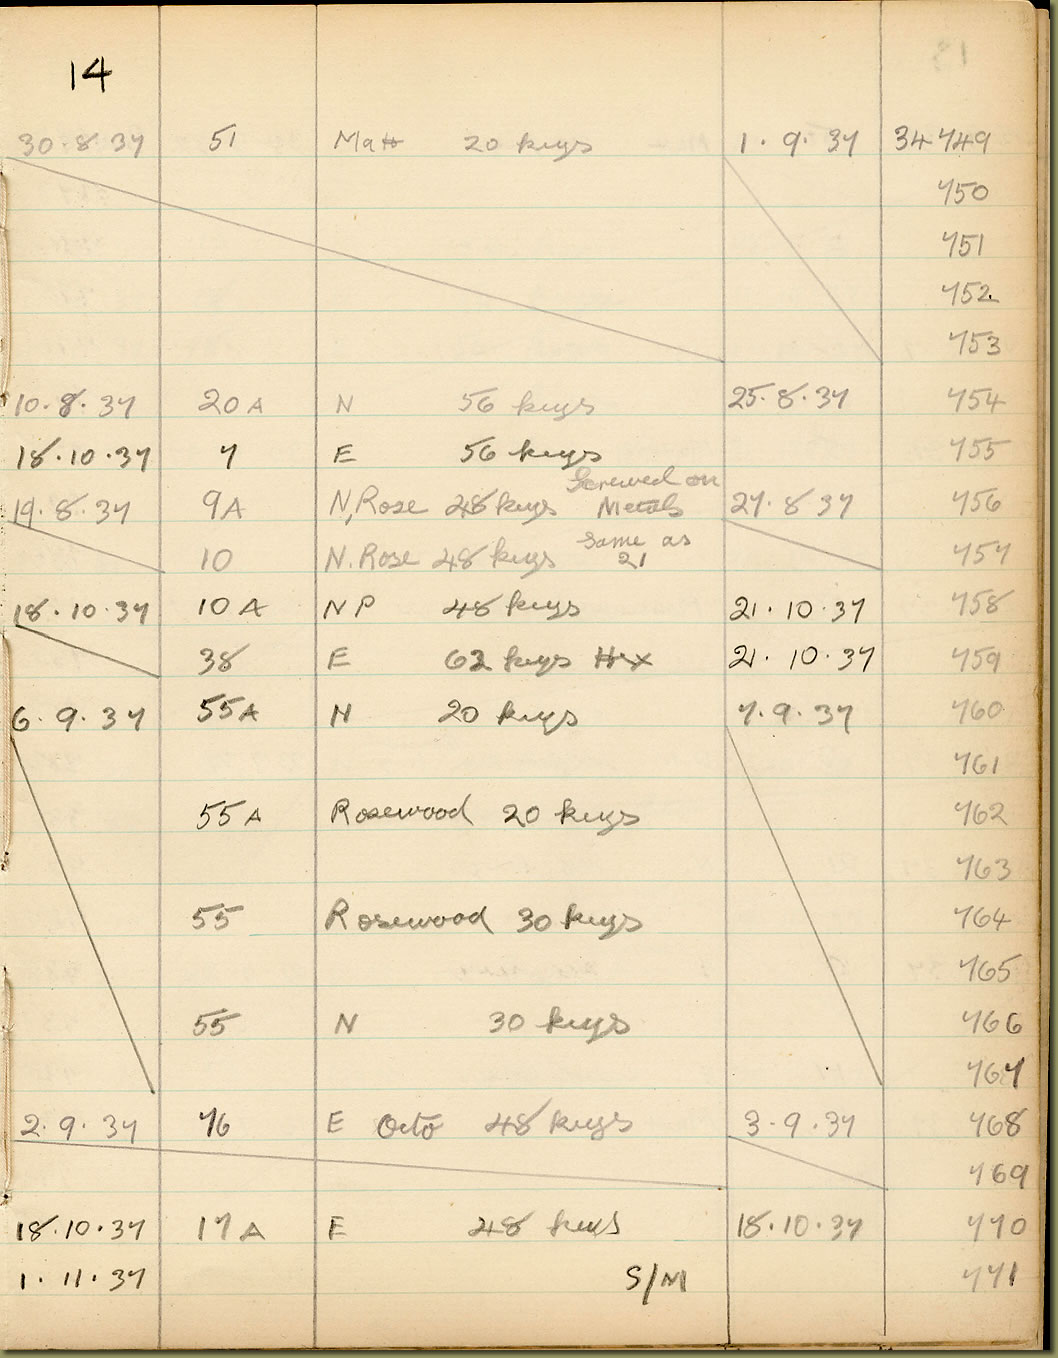 14
30.8.37 51 Matt 20 keys 1.9.37 34749
750
751
752
753
10.8.37 20A N 56 keys 25.8.37 754
18.10.37 7 E 56 keys 755
19.8.37 9A N, Rose 48 keys Screwed on Metals 27.8.37 756
10 N. Rose 48 keys Same as 21 757
18.10.37 10A NP 48 keys 21.10.37 758
38 E 62 keys 21.10.37 759
6.9.37 55A N 20 keys 7.9.37 760
761
55A Rosewood 20 keys 762
763
55 Rosewood 30 keys 764
765
55 N 30 keys 766
767
2.9.37 76 E Octo 48 keys 3.9.37 768
769
18.10.37 17A E 48 keys 18.10.37 770
1.11.37 S/M 771